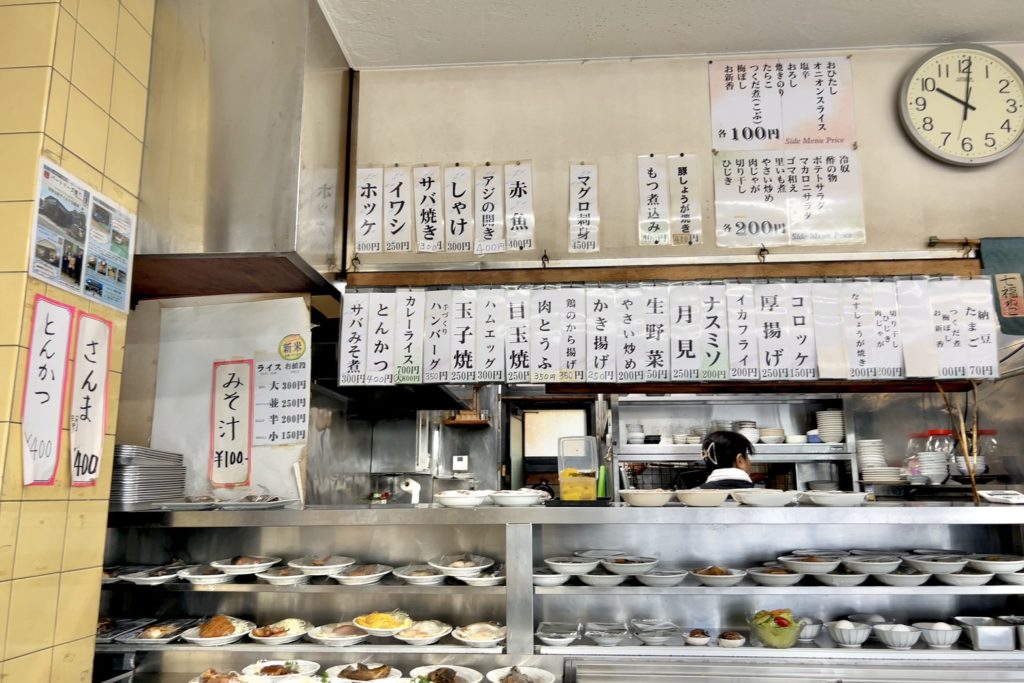 とんかつ
¥400
さんま
400
ホッケ
400円
イワシ
250円
サバ焼き
300円
しゃけ
300円
アジの開き
400円
赤魚
400円
マグロ刺身
450円
もつ煮込み
豚しょうが焼き
おひたし
オニオンスライス
塩辛
おろし
焼きのり
たらこ
つくだ煮(こぶ)
梅ぼし
お新香
各100円
Side Menu Price
冷奴
酢の物
ポテトサラダ
マカロニサラダ
ゴマ和え
里いも煮
やさい炒め
肉じゃが
切り干し
ひじき
各200円
Side Menu Price
10
11
12
1
2
3
4
5
6
7
8
9
七福
サバみそ煮
300円
とんかつ
400円
カレーライス
700円
手づくり
ハンバーグ
350円
玉子焼
250円
ハムエッグ
300円
目玉焼
250円
肉とうふ
350円
鶏のから揚げ
350円
かき揚げ
250円
やさい炒め
200円
生野菜
250円
月見
250円
ナスミソ
200円
イカフライ
厚揚げ
250円
コロッケ
なすしょうが焼き
200円
切り干し
肉じゃが
ひじき
200円
つくだ煮
梅ぼし
お新香
100円
納豆
たまご
70円
新米
ライス お値段
大 300円
並 250円
半 200円
小 150円
みそ汁
¥100-